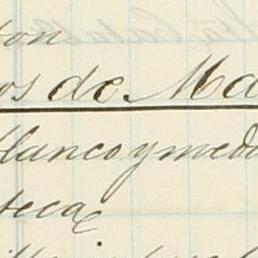 ton
os de Ma
blanco y medi
teca